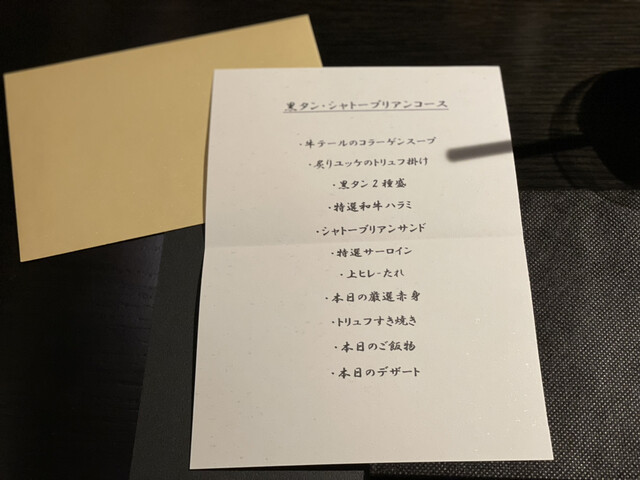 黒タン・シャトーブリアンコース
・牛テールのコラーゲンスープ
・炙りユッケのトリュフ掛け
・黒タン2種盛
・特選和牛ハラミ
・シャトーブリアンサンド
・特選サーロイン
・上ヒレ-たれ
・本日の厳選赤身
・トリュフすき焼き
・本日のご飯物
・本日のデザート